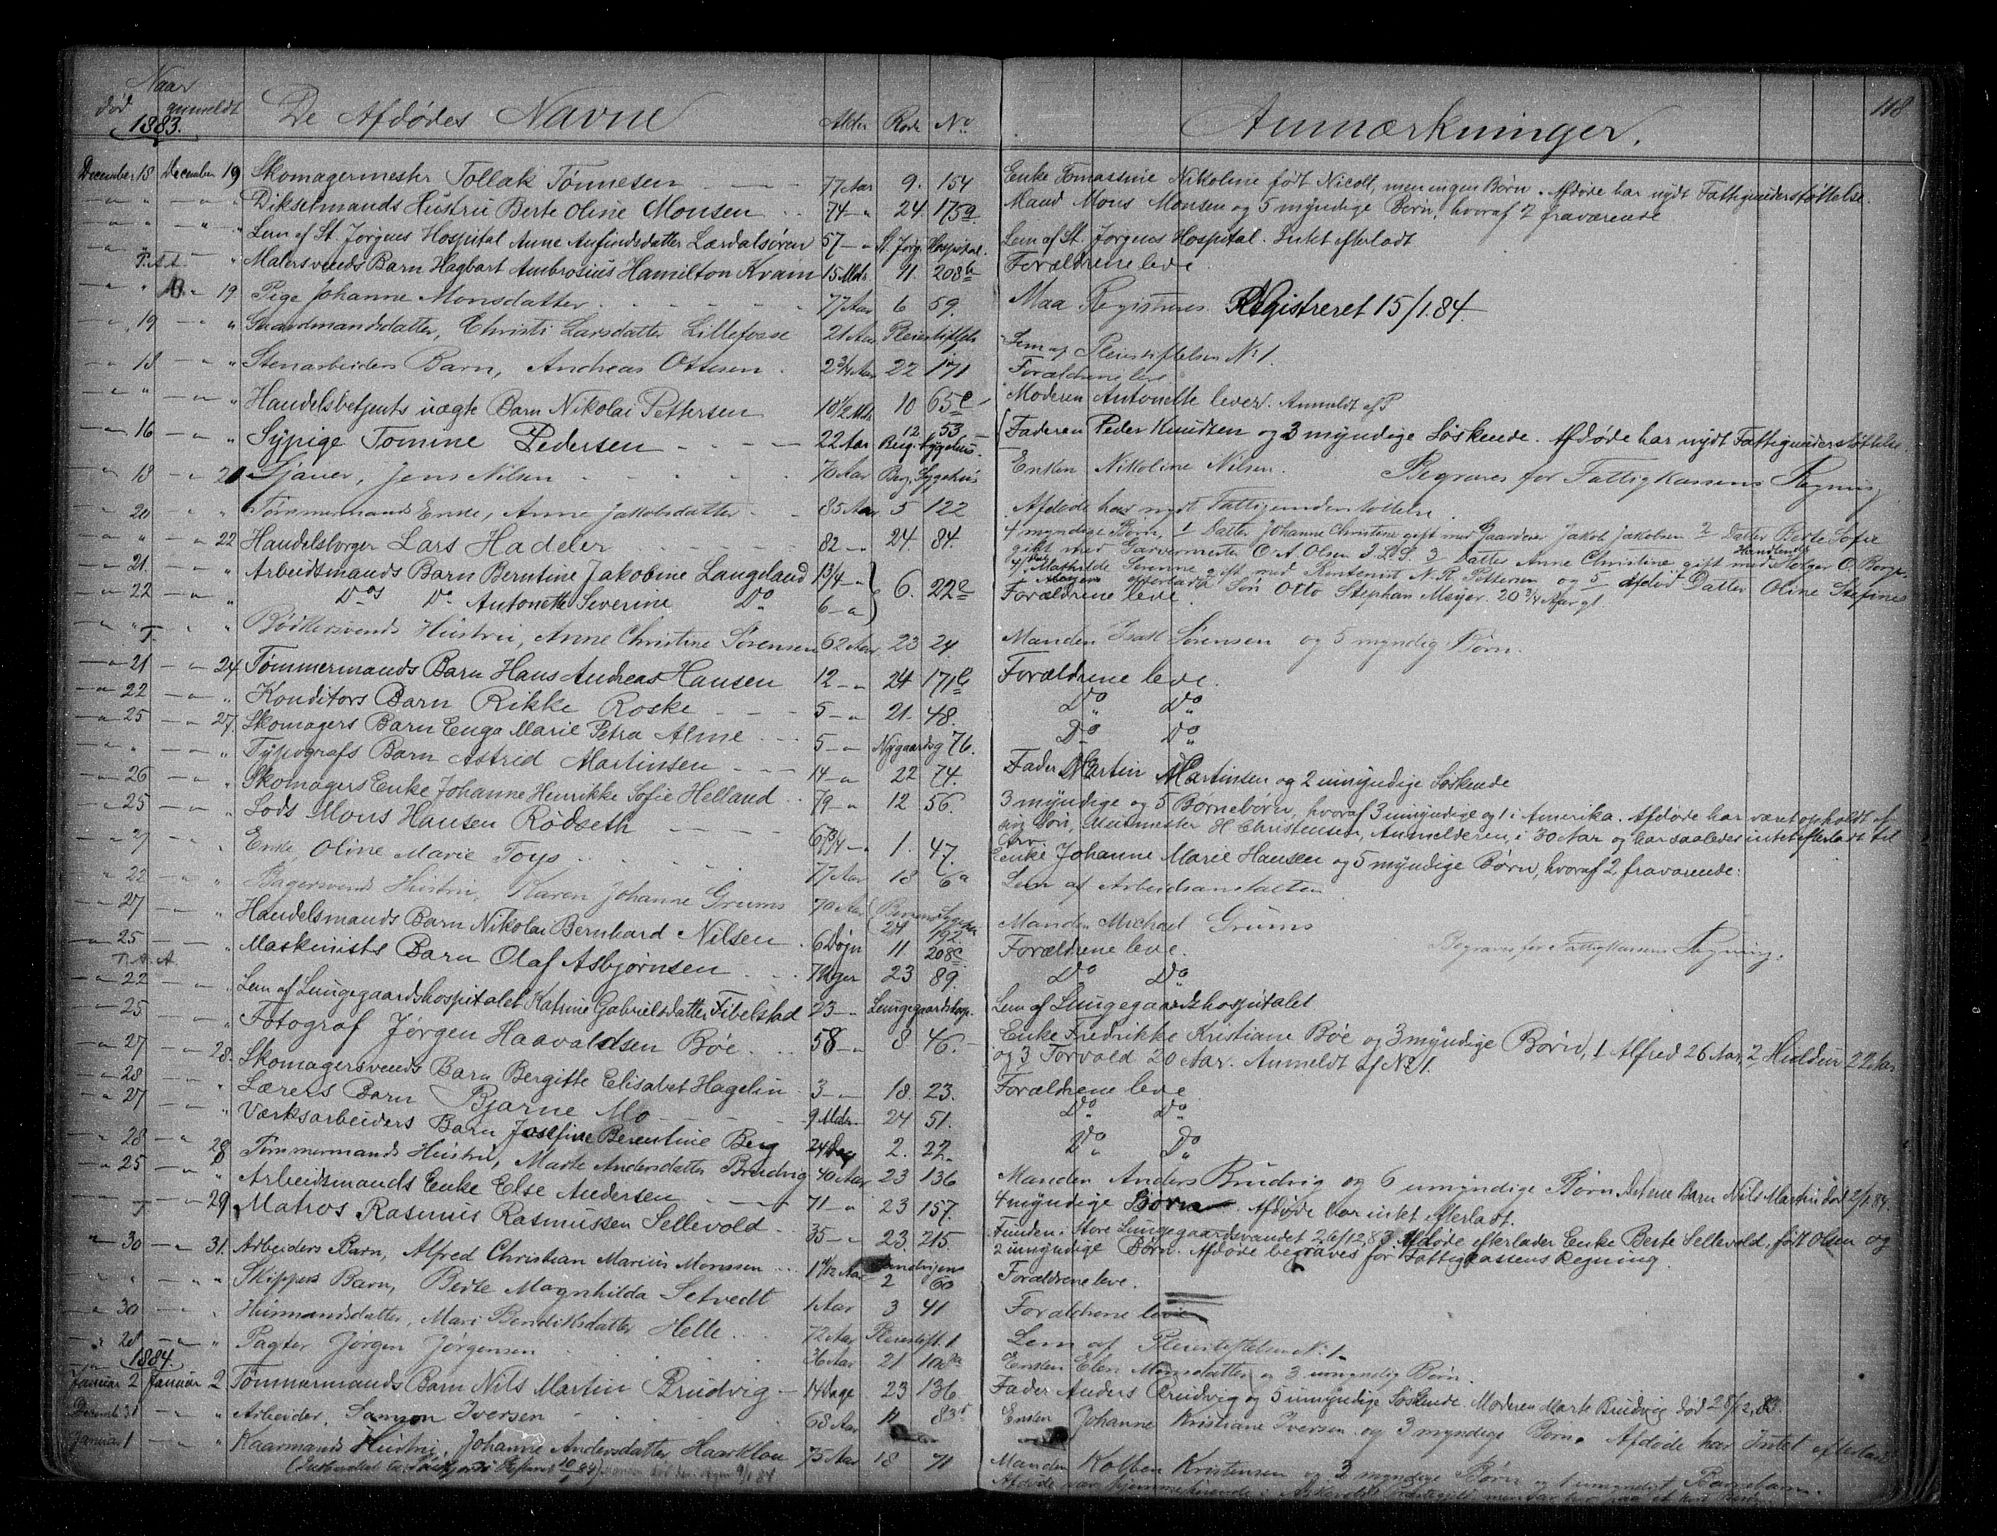 118
Naar
død anmeldt
1883.
De Afdødes Navne Alder Rode No Anmærkninger.
December 15 December 19 Skomagermester Tollak Tønnesen 77 Aar 9. 154 Enke Tomasine Nikoline født Nicoll, men ingen Børn. Afdøde har nydt Fattigunderstøttelse.
" " Dikselmands Hustru Berte Oline Monsen 74 " 24. 175a Mand Mons Monsen og 5 myndige Børn, hvoraf 2 fraværende
" " Lem af St. Jørgens Hospital Anne Anfindsdatter Lærdalsøren 57 " St. Jørg. Hospital. Lem af St. Jørgens Hospital. Intet efterladt
T.A.A. " Malersvends Barn Hagbart Ambrosius Hamilton Kvam 15 Mdr 11. 208b Forældrene leve
" 19 Pige Johanne Monsdatter 77 Aar 6 59. Maa Registreres. Registreret 15/1.84.
" 19 " Gaardmandsdatter, Christi Larsdatter Lillefosse 21 Aar Pleiestiftels Lem af Pleiestiftelsen No 1.
" 18 " Stenarbeiders Barn, Andreas Ottesen 2 3/4 Aar 22 171 Forældrene leve
" " Handelsbetjents uægte Barn Nikolai Pettersen 10 1/2 Mdr 10 65c Moderen Antonette lever. Anmeldt af P
" 16 " Sypige Tomine Pedersen 22 Aar 12 53 Berg. Sygehus. Faderen Peder Knudsen og 3 myndige Søskende. Afdøde har nydt Fattigunderstøttelse.
" 18 " 20 Jens Nilsen 70 Aar Berg. Sygehus Enken Nikoline Nilsen. Begraves for Fattigkassens Regning
" 20 " Tømmermands Enke, Anne Jakobsdatter 85 Aar 5 122 Afdøde har nydt Fattigunderstøttelse.
" " 22 Handelsborger Lars Hadeler 82 " 24. 84. 4 myndige Børn, 1 Datter Johanne Christine gift med Gaardeier Jakob Jakobsen 2 Datter Berte Sofie
gift med Garvermester O. A. Olsen 3 Datter Anne Christine gift med Handlende Holger O. Berge
" 21 " Arbeidsmands Barn Berntine Jakobine Langeland 1 3/4 " 6. 22c 4 Mathilde Severine gift med Rentenist N. R. Pettersen og 5 afdød Datter Oline Stefines
Søn Otto Stephan Meyer 20 3/4 Aar gl.
" 22 " Dos Do Antonette Severine Do 6 " Forældrene leve
" T. " Bødkersvends Hustru, Anne Christine Sørensen 62 Aar 23 24. Manden Isak Sørensen og 5 myndig Børn.
" 21 " 24 Tømmermands Barn Hans Andreas Hansen 12 " 24 171b Forældrene leve.
" 22 " Konditors Barn Rikke Roske 5 " 21. 48. Do Do
" 25 " 27. Skomagers Barn Enga Marie Petra Alme 5 " Nygaardsg 76. Do Do
" " Typografs Barn Astrid Martinsen 14 " 22 74. Fader Martin Martinsen og 2 umyndige Søskende
" 26 " Skomagers Enke Johanne Henrikke Sofie Helland 79 " 12 56. 3 myndige og 5 Børnebørn, hvoraf 3 umyndige og 1 i Amerika. Afdøde har været opholdt af
sin Søn, Murmester H. Christensen, Anmelderen, i 30 Aar og har saaledes intet efterladt til
Arv.
" 25 " Lods Mons Hansen Rødseth 67 3/4 " 1. 47. Enke Johanne Marie Hansen og 5 myndige Børn, hvoraf 2 fraværende:
" 27 " Enke Oline Marie Toys 77 Aar 18 6a Lem af Arbeidsanstalten
" 22 " Bagersvends Hustru, Karen Johanne Grums 70 Aar Manden Michael Grums
Begraves for Fattigkassens Regning.
" 27 " Handelsmands Barn Nikolai Bernhard Nilsen 6 Døgn 24 192. Forældrene leve.
" 25 " Maskinists Barn Olaf Asbjørnsen 7 Uger 11 208c Do Do
T.A.A.
" 22 " Lem af Lungegaardshospitalet Katrine Gabrielsdatter Fibelstad 23 " Lungegaardshosp. Lem af Lungegaardshospitalet
23 89.
" 25 " Fotograf Jørgen Haavaldsen Bøe 58 " 8 46. Enke Fredrikke Kristiane Bøe og 3 myndige Børn, 1 Alfred 26 Aar, 2 Hieldur 22 Aar
og 3 Torvald 20 Aar. Anmeldt af No 1.
" 27 " 28. Skomagersvends Barn Bergitte Elisabet Hagelin 3 " 18. 23. Forældrene leve
" 28 Lærers Barn Bjarne Mo 9 Mdr. 24 51. Do Do
" 27 " Værksarbeiders Barn Josefine Berentine Berg 24 Dag 2. 22. Do Do
" 28 " 28 Tømmermands Hustru, Marte Andersdatter Brudvig 40 Aar 23 136 Manden Anders Brudvig og 6 umyndige Børn Barn Nils Martin død 2/1.84.
" 25 " Arbeidsmands Enke Else Andersen 71 " 23 157. 4 myndige Børn. Afdøde har intet efterladt.
" T " 29 Matros Rasmus Rasmussen Sellevold 35 " 23. 215. Funden i Store Lungegaardsvandet 26/12.83. Afdøde efterlader Enke Berte Sellevold, født Olsen og
2 umyndige Børn. Afdøde begraves for Fattigkassens Regning.
" 30 " 31. Arbeiders Barn, Alfred Christian Marius Monssen Aar Sandvigen Forældrene leve.
" " Skippers Barn, Berte Magnhilda Setvedt 1 Aar 2 60 Forældrene leve
" 30 " Husmandsdatter, Mari Bendiksdatter Helle 72 Aar 3 41 Pleiestift. 1 Lem af Pleiestiftelsen No 1.
" 28 " Pagter Jørgen Jørgensen 36 Aar 21 Enken Elen Monsdatter og 3 umyndig Børn.
1884.
Januar 2 Januar 2 Tømmermands Barn Nils Martin Brudvig 14 Dage 23 136. Fader Anders Brudvig og 5 umyndige Søskende. Moderen Marte Brudvig død 28/12.83.
Decemb. 31 " " Arbeider, Samson Iversen 68 Aar 83 Enken Johanne Kristiane Iversen og 3 myndige Børn. Afdøde har Intet efterladt
Januar 1 " " Kaarmands Hustru, Johanne Andersdatter Haarklau 75 Aar 18 71 Manden Kolben Kristensen og 3 myndige Børn og 1 umyndigt Barnebarn.